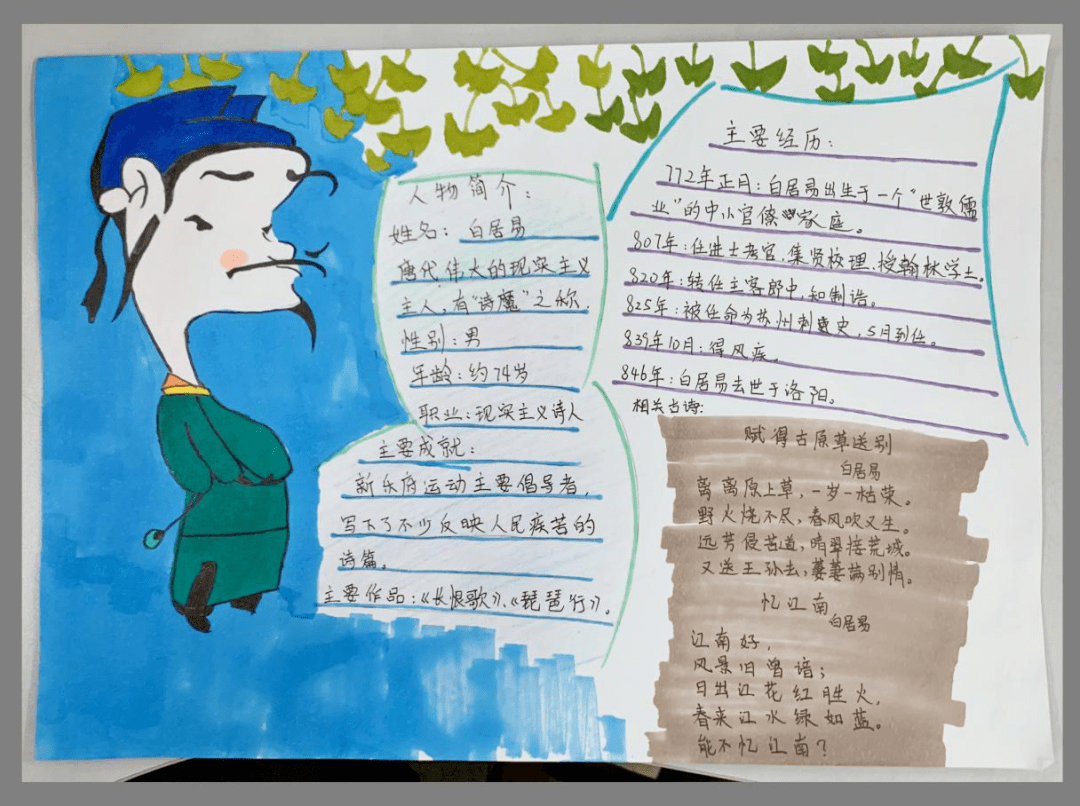 人物简介：
姓名：白居易
唐代伟大的现实主义
主人，有“诗魔”之称
性别：男
年龄：约74岁
职业：现实主义诗人
主要成就：
新乐府运动主要倡导者，
写下了不少反映人民疾苦的
诗篇。
主要作品：《长恨歌》、《琵琶行》。
主要经历：
772年正月：白居易出生于一个“世敦儒
业”的中小官僚家庭。
807年：任进士考官、集贤校理，授翰林学士。
820年：转任主客郎中，知制诰。
825年：被任命为苏州刺史，5月到任。
839年10月：得风疾。
846年：白居易去世于洛阳。
相关古诗：
赋得古原草送别
白居易
离离原上草，一岁一枯荣。
野火烧不尽，春风吹又生。
远芳侵苦道，晴翠接荒城。
又送王孙去，萋萋满别情。
忆江南
白居易
江南好，
风景旧曾谙；
日出江花红胜火，
春来江水绿如蓝。
能不忆江南？